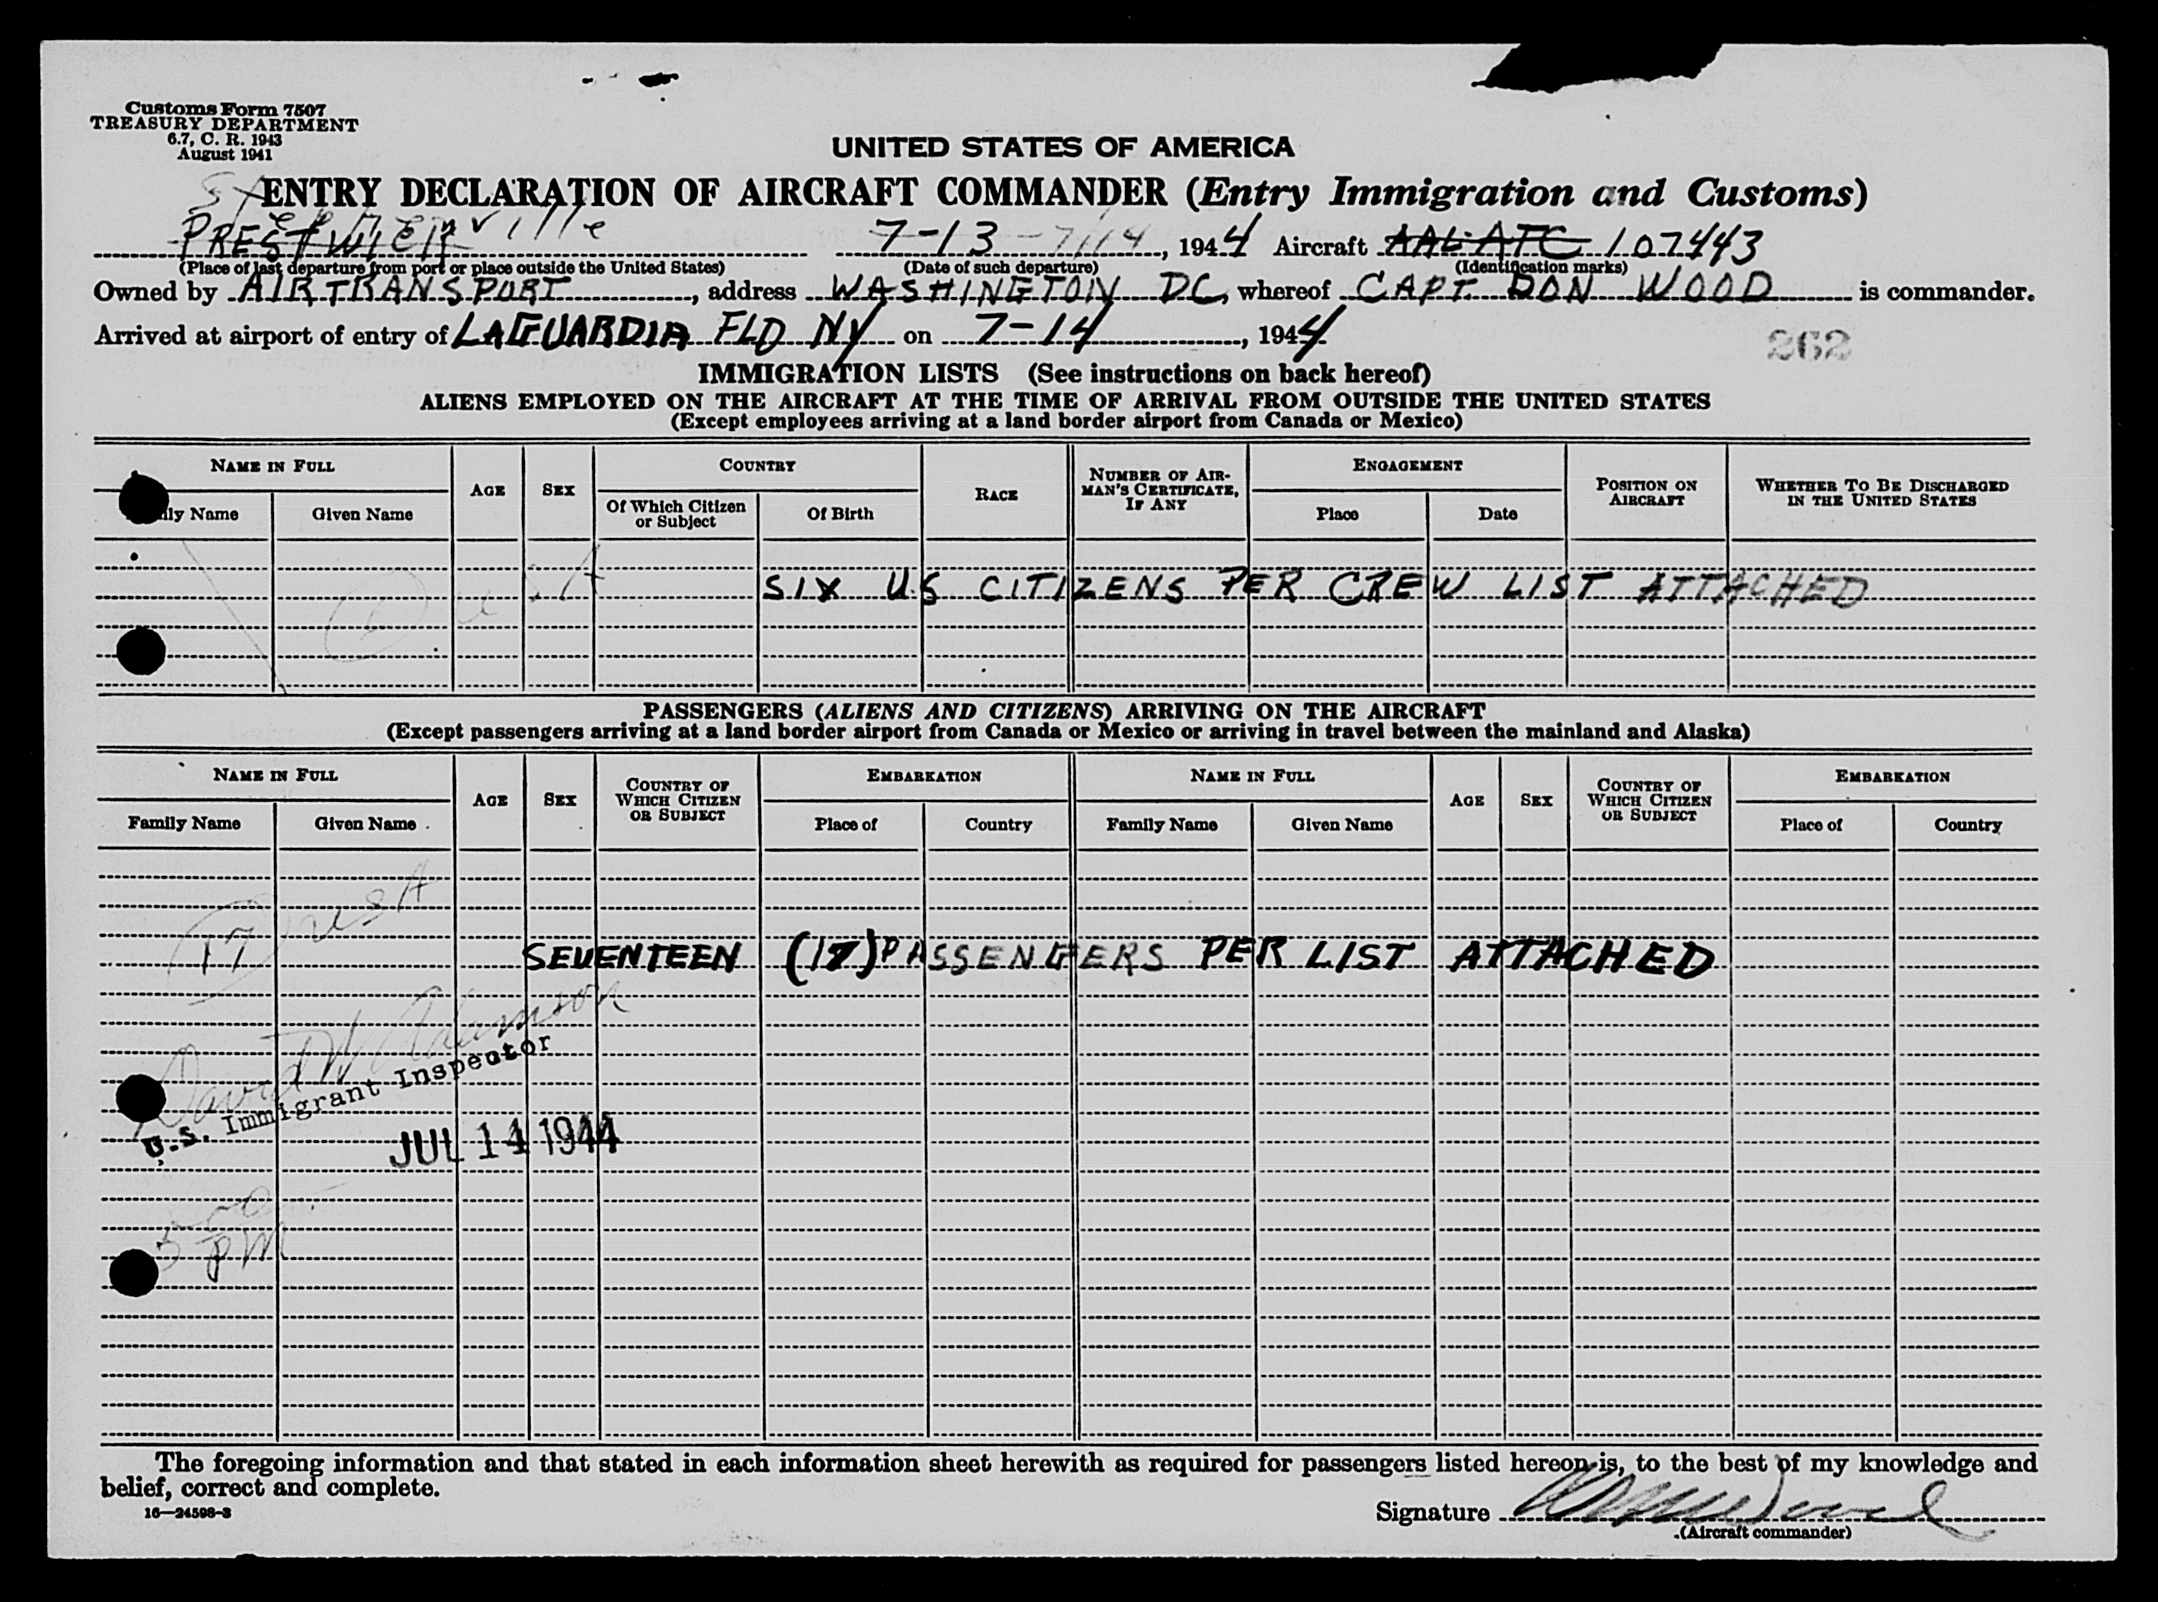 Customs Form 7507
TREASURY DEPARTMENT
6.7, C. R. 1943
August 1941
UNITED STATES OF AMERICA
ENTRY DECLARATION OF AIRCRAFT COMMANDER (Entry Immigration and Customs)
Stephenville
PRESTWICK 7-13-7/14, 1944 Aircraft AAL-ATC 107443
(Place of last departure from port or place outside the United States) (Date of such departure) (Identification marks)
Owned by AIRTRANSPORT, address WASHINGTON DC, whereof CAPT. DON WOOD is commander.
Arrived at airport of entry of LAGUARDIA FLD NY on 7-14, 1944
262
IMMIGRATION LISTS (See instructions on back hereof)
ALIENS EMPLOYED ON THE AIRCRAFT AT THE TIME OF ARRIVAL FROM OUTSIDE THE UNITED STATES
(Except employees arriving at a land border airport from Canada or Mexico)
NAME IN FULL AGE SEX COUNTRY RACE NUMBER OF AIRMAN'S CERTIFICATE, IF ANY ENGAGEMENT POSITION ON AIRCRAFT WHETHER TO BE DISCHARGED IN THE UNITED STATES
Name Given Name Of Which Citizen or Subject Of Birth Place Date
USA
SIX U.S CITIZENS PER CREW LIST ATTACHED
PASSENGERS (ALIENS AND CITIZENS) ARRIVING ON THE AIRCRAFT
(Except passengers arriving at a land border airport from Canada or Mexico or arriving in travel between the mainland and Alaska)
NAME IN FULL AGE SEX COUNTRY OF WHICH CITIZEN OR SUBJECT EMBARKATION NAME IN FULL AGE SEX COUNTRY OF WHICH CITIZEN OR SUBJECT EMBARKATION
Family Name Given Name Place of Country Family Name Given Name Place of Country
17 USA
SEVENTEEN (17) PASSENGERS PER LIST ATTACHED
David W Adamson
U.S. Immigrant Inspector
JUL 14 1944
5 pm
The foregoing information and that stated in each information sheet herewith as required for passengers listed hereon is, to the best of my knowledge and
belief, correct and complete.
16—24598-3
Signature
(Aircraft commander)